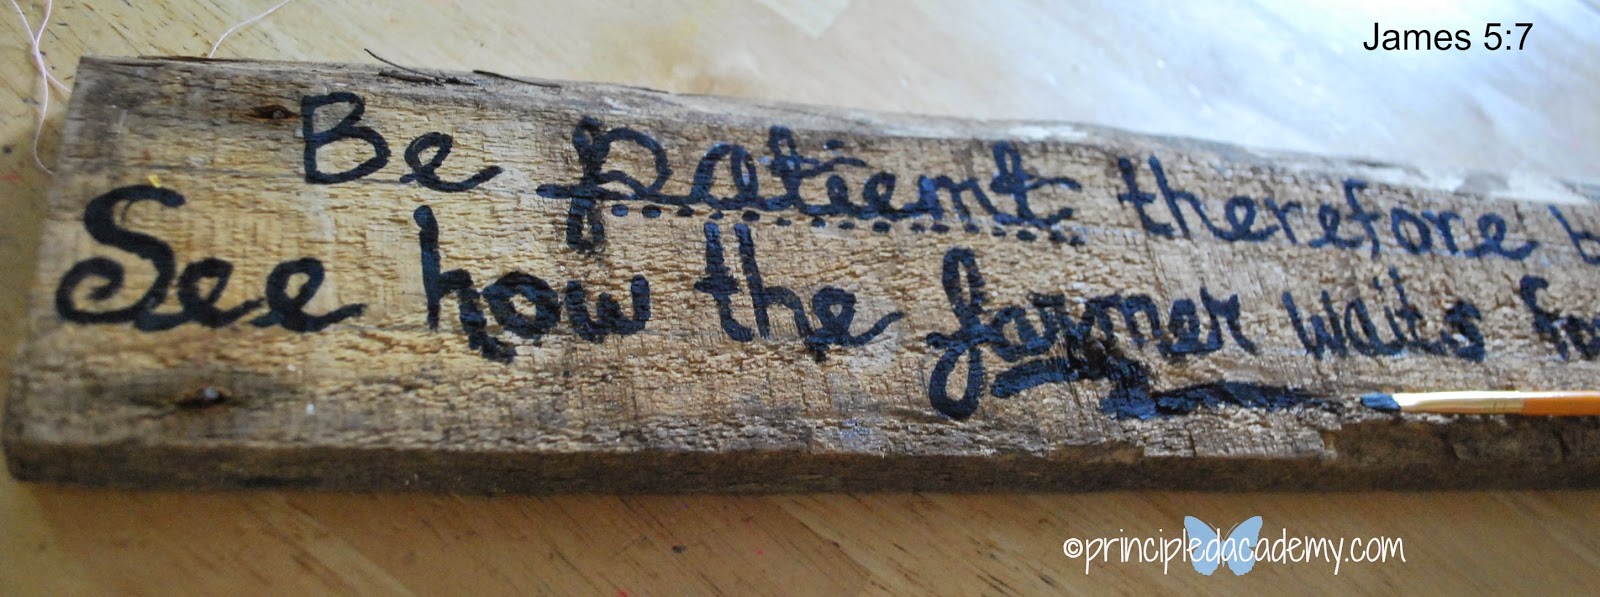 James 5:7
Be patient therefore b
See how the farmer waits fo
©principledacademy.com